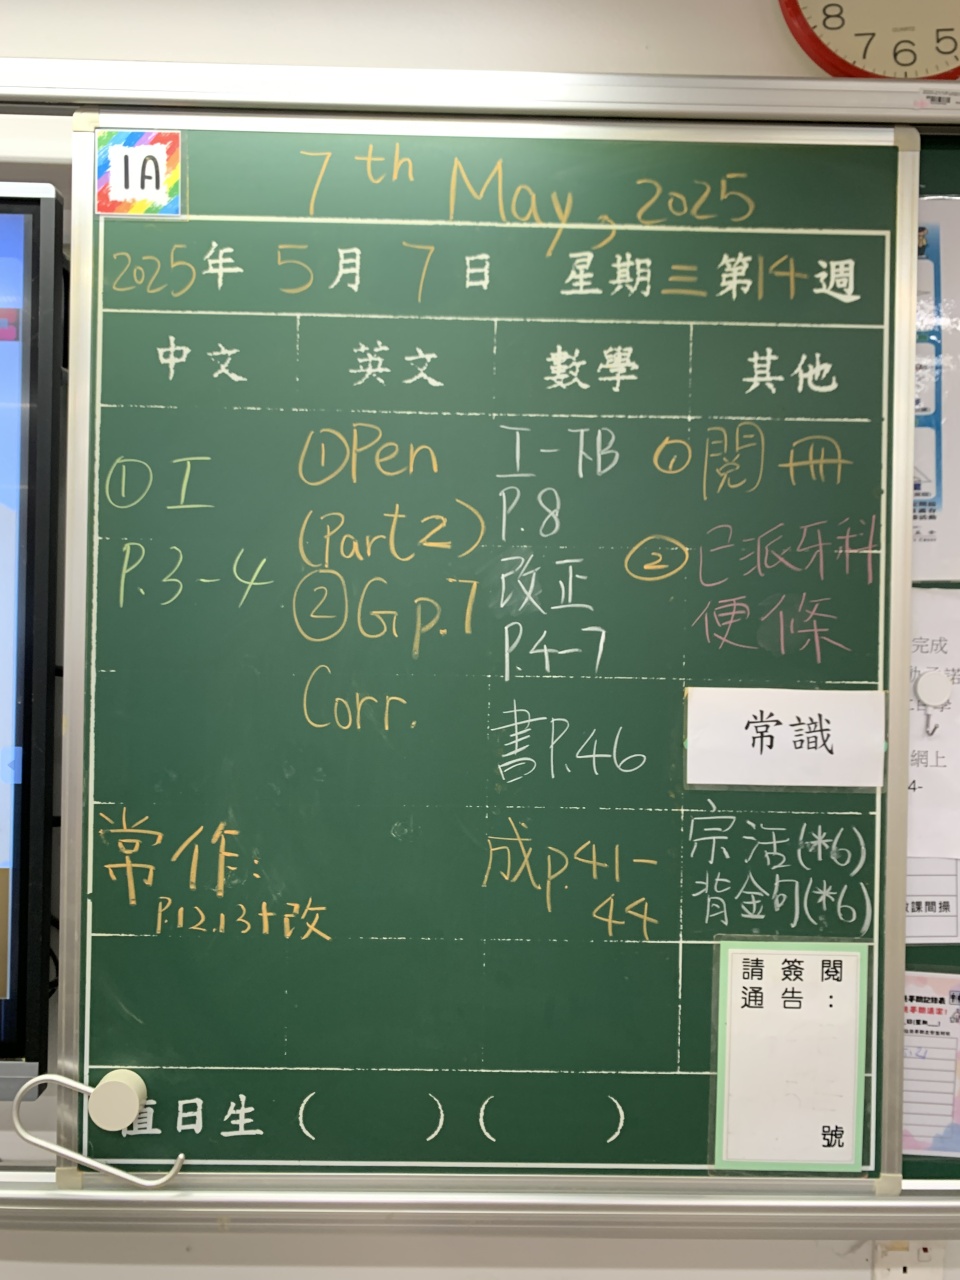 8
7 6 5
1A
7th May, 2025
2025年 5月 7日 星期三 第14週
中文 英文 數學 其他
①工
P.3-4
①Pen
(Part 2)
②G p.7
Corr.
工-TB
P.8
改正
P.4-7
書P.46
①閱冊
②已派牙科
便條
常識
常作:
P.12,13+改
成p.41-
44
宗活(*6)
背金句(*6)
請簽閱
通告:
號
值日生 ( ) ( )
完成
網上
4-
課間操